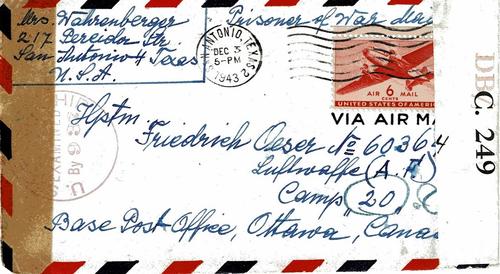 Mrs. Wahrenberger
217 Pereida Str.
San Antonio 4 Texas
U.S.A.
Prisoner of War
SAN ANTONIO, TEXAS 2
DEC 3
5-PM
1943
AIR 6 MAIL
CENTS
UNITED STATES OF AMERIC
VIA AIR MA
Hptm.
Friedrich Oeser No 60364
Luftwaffe (A.F.)
Camp "20"
Base Post Office, Ottawa, Canad
EXAMINED
By 9
DB
C. 249